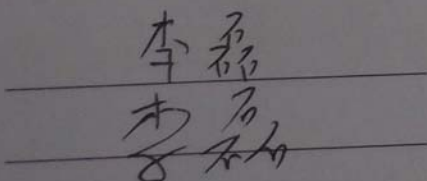 李磊
李磊